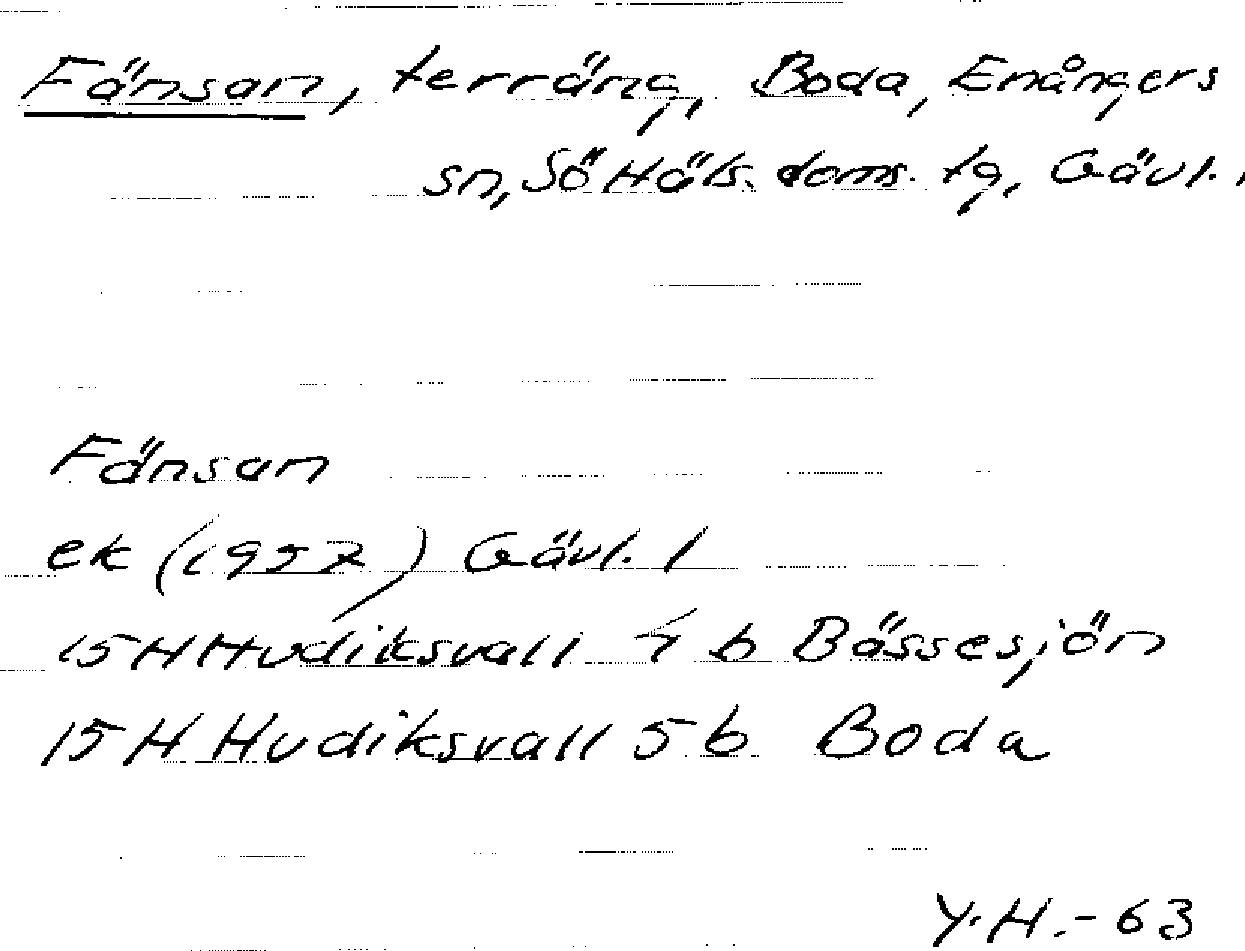 Fänsan, terräng, Boda, Enångers
sn, Sö Häls. doms. tg, Gävl. l
Fänsan
ek (1957) Gävl. l
15 H Hudiksvall 4 b Bössesjön
15 H Hudiksvall 5 b Boda
Y.H.-63